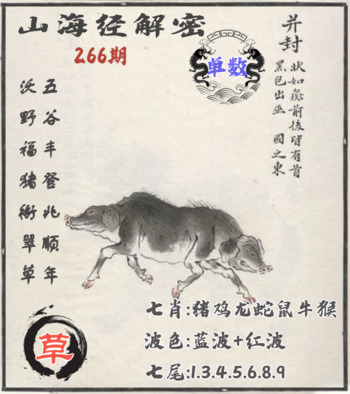 山海经解密
266期
单数
并封
状如彘前後皆有首
黑色出巫 国之东
五谷丰登兆顺年
沃野福猪衔翠草
七肖:猪鸡龙蛇鼠牛猴
波色:蓝波+红波
七尾:1.3.4.5.6.8.9
草